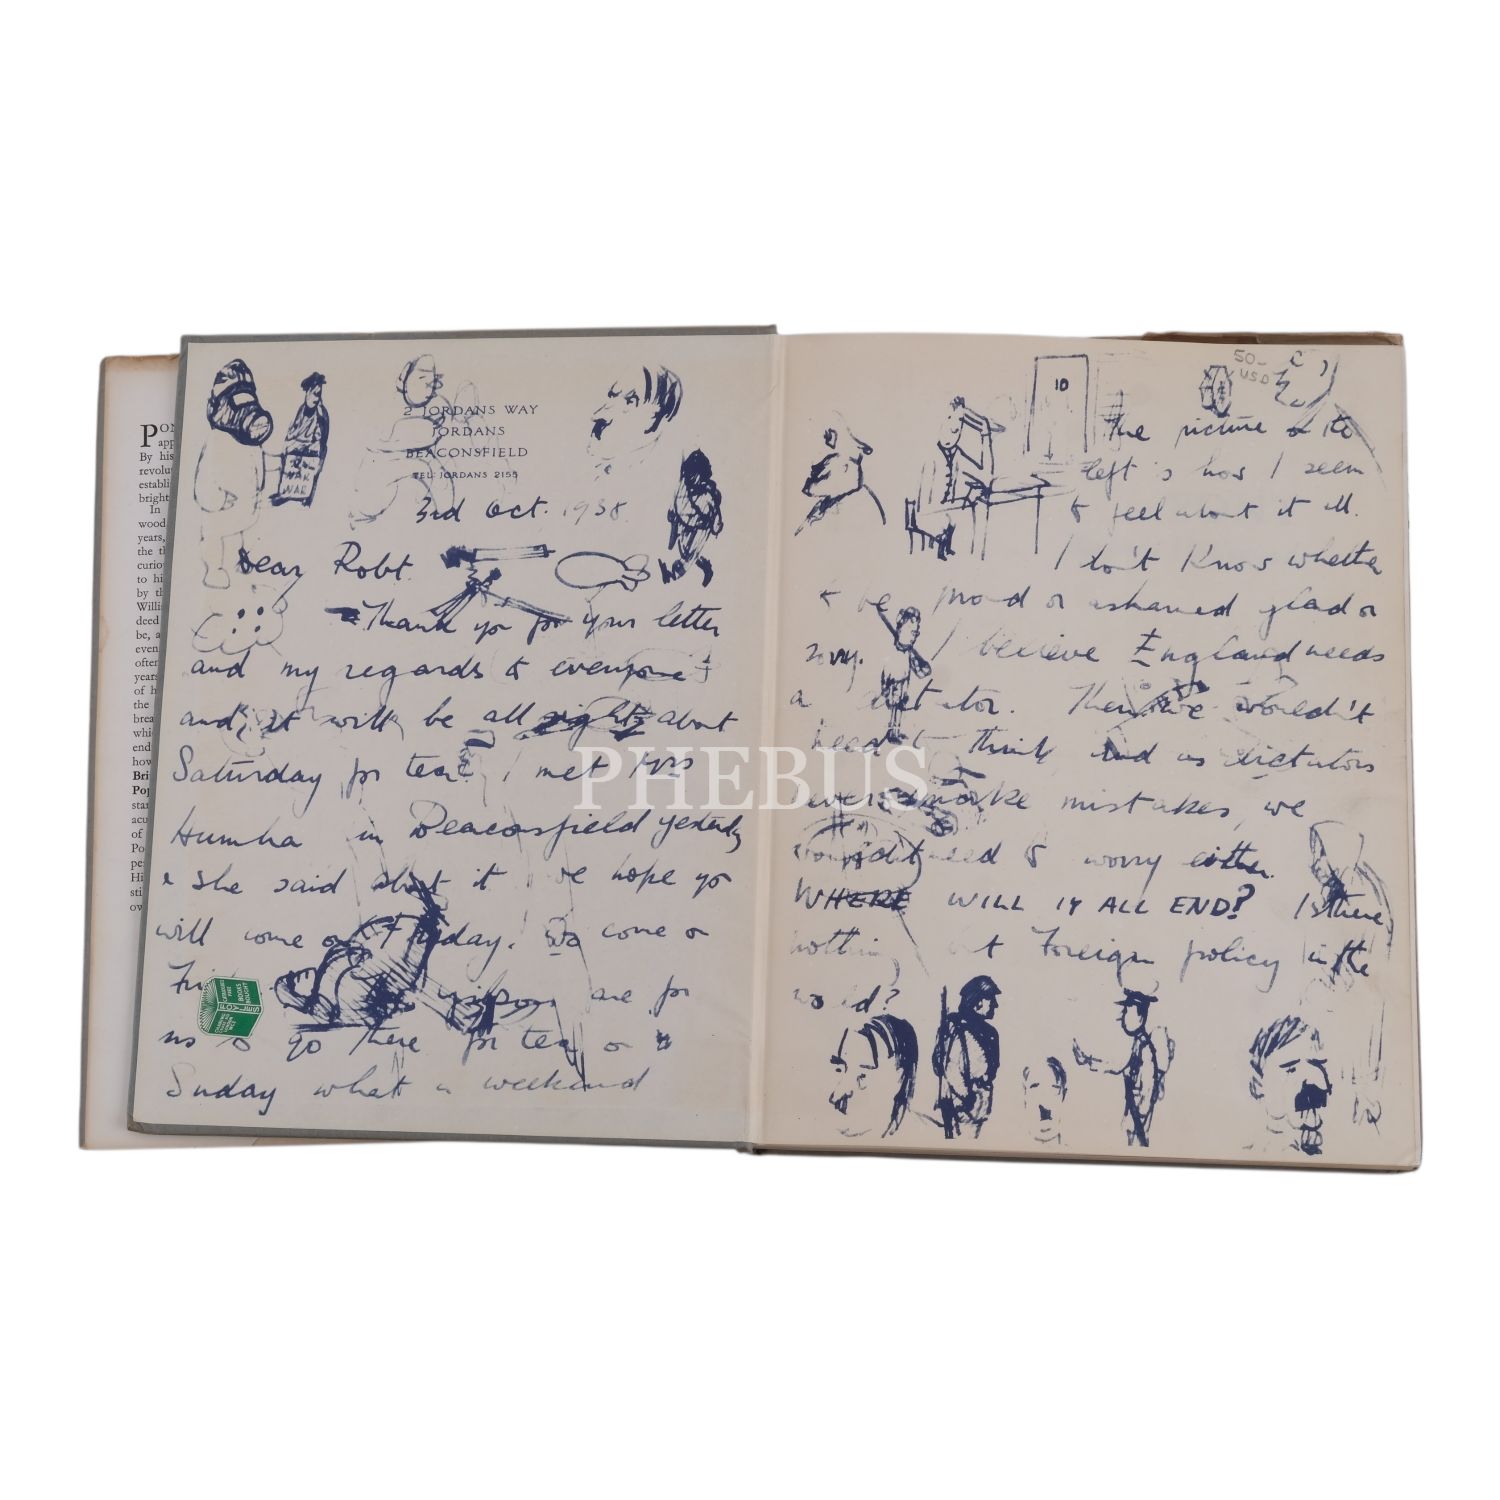 PON
app
By his
revolu
establis
bright
In
wood
years,
the th
curio
to hi
by th
Willi
deed
be, a
even
often
years
of h
the
brea
whic
end
how
Brit
Pop
star
acu
of
Po
per
Hi
sti
ov
2 JORDANS WAY
JORDANS
BEACONSFIELD
TEL JORDANS 2155
WAR
WAR
3rd Oct. 1938
Dear Robt.
Thank yo for your letter
and my regards to everyone
and it will be all right about
Saturday for tea. I met Mrs
Humha in Beaconsfield yesterday
& she said about it we hope yo
will come on Friday! Do come on
Fri are for
us to go there for tea on
Sunday what a weekend
50-
USD
10
The picture on the
left is how I seem
to feel about it all.
I don't Know whether
to be proud or ashamed glad or
sorry. I believe England needs
a dictator. Then we wouldn't
need to think and as dictators
never make mistakes, we
wouldn't need to worry either.
WHERE WILL IT ALL END? Is there
nothing but Foreign policy in the
world?
PHEBUS